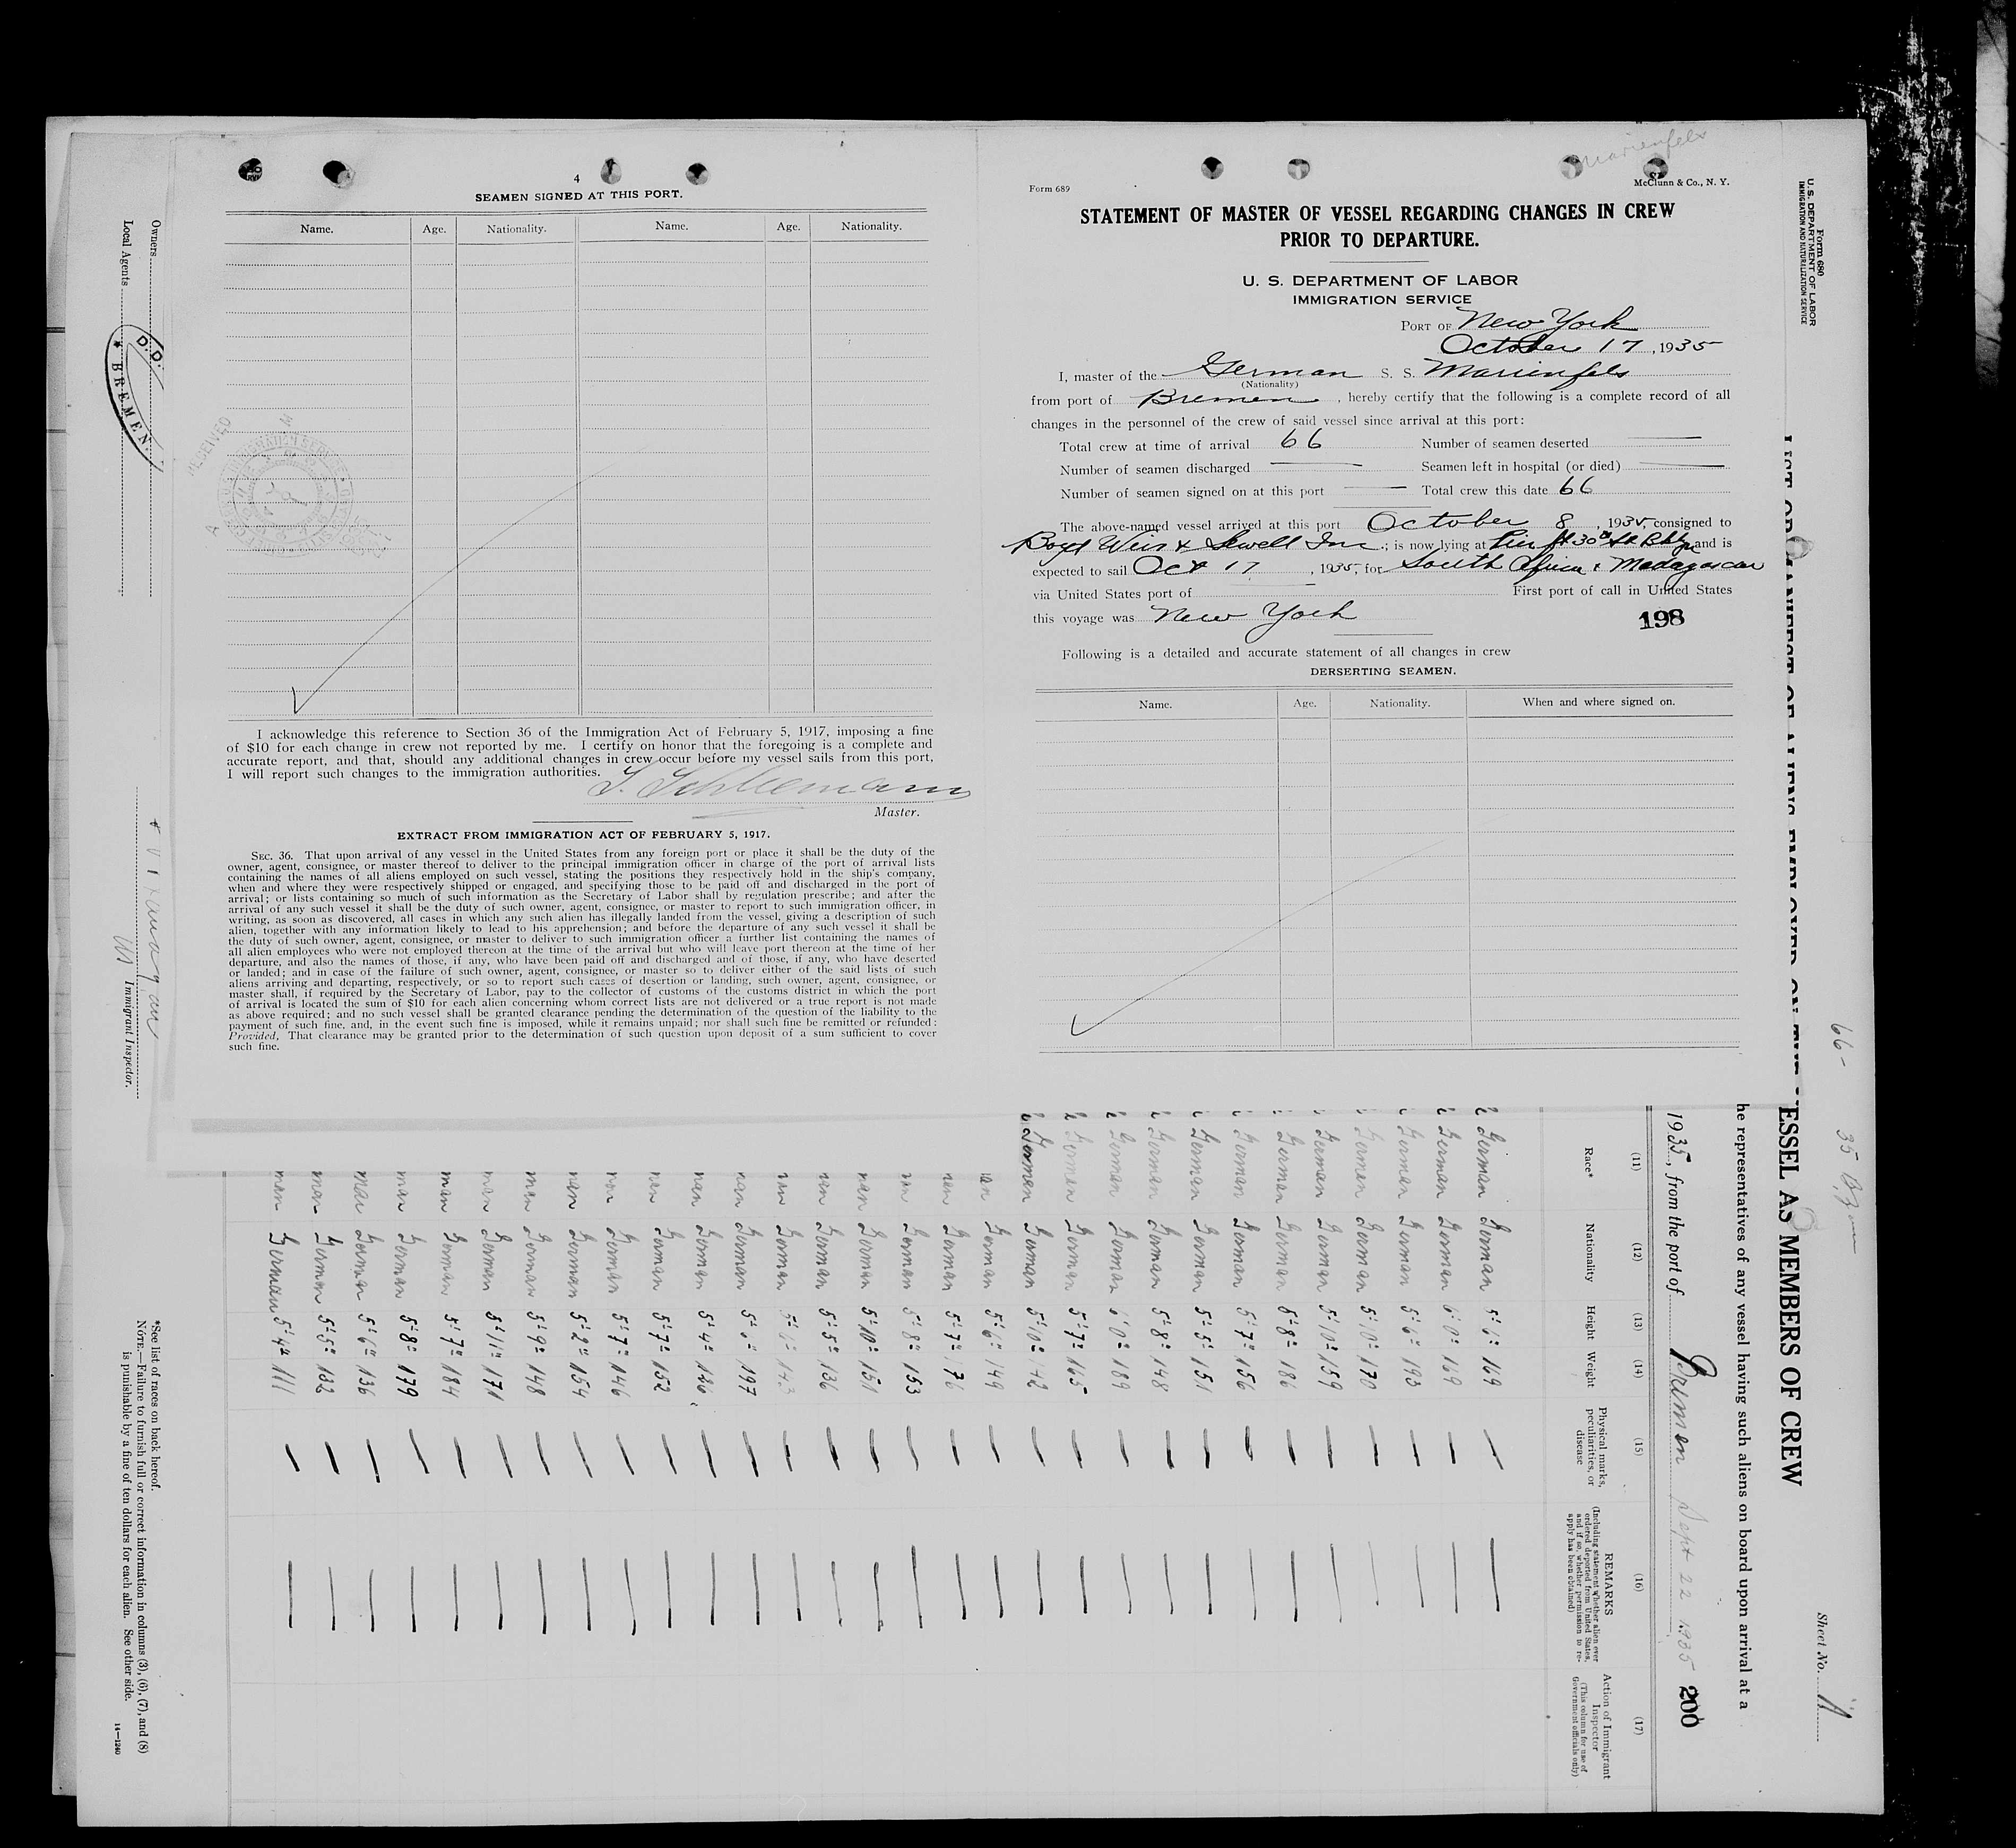 4
SEAMEN SIGNED AT THIS PORT.
Name. Age. Nationality. Name. Age. Nationality.
I acknowledge this reference to Section 36 of the Immigration Act of February 5, 1917, imposing a fine
of $10 for each change in crew not reported by me. I certify on honor that the foregoing is a complete and
accurate report, and that, should any additional changes in crew occur before my vessel sails from this port,
I will report such changes to the immigration authorities.
Master.
EXTRACT FROM IMMIGRATION ACT OF FEBRUARY 5, 1917.
SEC. 36. That upon arrival of any vessel in the United States from any foreign port or place it shall be the duty of the
owner, agent, consignee, or master thereof to deliver to the principal immigration officer in charge of the port of arrival lists
containing the names of all aliens employed on such vessel, stating the positions they respectively hold in the ship's company,
when and where they were respectively shipped or engaged, and specifying those to be paid off and discharged in the port of
arrival; or lists containing so much of such information as the Secretary of Labor shall by regulation prescribe; and after the
arrival of any such vessel it shall be the duty of such owner, agent, consignee, or master to report to such immigration officer, in
writing, as soon as discovered, all cases in which any such alien has illegally landed from the vessel, giving a description of such
alien, together with any information likely to lead to his apprehension; and before the departure of any such vessel it shall be
the duty of such owner, agent, consignee, or master to deliver to such immigration officer a further list containing the names of
all alien employees who were not employed thereon at the time of the arrival but who will leave port thereon at the time of her
departure, and also the names of those, if any, who have been paid off and discharged and of those, if any, who have deserted
or landed; and in case of the failure of such owner, agent, consignee, or master so to deliver either of the said lists of such
aliens arriving and departing, respectively, or so to report such cases of desertion or landing, such owner, agent, consignee, or
master shall, if required by the Secretary of Labor, pay to the collector of customs of the customs district in which the port
of arrival is located the sum of $10 for each alien concerning whom correct lists are not delivered or a true report is not made
as above required; and no such vessel shall be granted clearance pending the determination of the question of the liability to the
payment of such fine, and, in the event such fine is imposed, while it remains unpaid; nor shall such fine be remitted or refunded:
Provided, That clearance may be granted prior to the determination of such question upon deposit of a sum sufficient to cover
such fine.
Marienfels
Form 689 McClunn & Co., N. Y.
STATEMENT OF MASTER OF VESSEL REGARDING CHANGES IN CREW
PRIOR TO DEPARTURE.
U. S. DEPARTMENT OF LABOR
IMMIGRATION SERVICE
PORT OF New York
October 17, 1935
I, master of the German S. S. Marienfels
(Nationality)
from port of Bremen, hereby certify that the following is a complete record of all
changes in the personnel of the crew of said vessel since arrival at this port:
Total crew at time of arrival 66 Number of seamen deserted
Number of seamen discharged Seamen left in hospital (or died)
Number of seamen signed on at this port Total crew this date 66
The above-named vessel arrived at this port October 8, 1935, consigned to
Boyd Weir & Sewell Inc.; is now lying at Pier ft 30th St Bklyn and is
expected to sail Oct 17, 1935, for South Africa & Madagascar
via United States port of First port of call in United States
this voyage was New York
198
Following is a detailed and accurate statement of all changes in crew
DERSERTING SEAMEN.
Name. Age. Nationality. When and where signed on.
Form 680
U. S. DEPARTMENT OF LABOR
IMMIGRATION AND NATURALIZATION SERVICE
Sheet No.
66-
ESSEL AS MEMBERS OF CREW
he representatives of any vessel having such aliens on board upon arrival at a
1935, from the port of Bremen Sept 22 1935
200
(11) (12) (13) (14) (15) (16) (17)
Race* Nationality Height Weight Physical marks, peculiarities, or disease
REMARKS
(Including statement whether alien ever ordered deported from United States, and if so, whether permission to reapply has been obtained)
Action of Immigrant Inspector
(This column for use of Government officials only)
German German 5'6" 169
German German 6'0" 169
German German 5'6" 193
German German 5'10" 170
German German 5'10" 159
German German 5'8" 186
German German 5'7" 156
German German 5'5" 151
German German 5'8" 148
German German 6'0" 189
German German 5'7" 165
German German 5'10" 142
German 5'6" 149
German 5'7" 176
German 5'8" 153
German 5'10" 151
German 5'5" 136
German
German 197
German 5'4"
German 5'7" 152
German 5'7" 146
German 5'2" 154
German 5'9" 148
German 5'11" 171
German 5'7" 184
German 5'8" 179
German 5'6" 136
German 5'5" 132
German 5'4" 111
*See list of races on back hereof.
NOTE.—Failure to furnish full or correct information in columns (3), (6), (7), and (8)
is punishable by a fine of ten dollars for each alien. See other side.
14—1240
Owners
Local Agents
D.D.
★ BREMEN
Immigrant Inspector.
RECEIVED